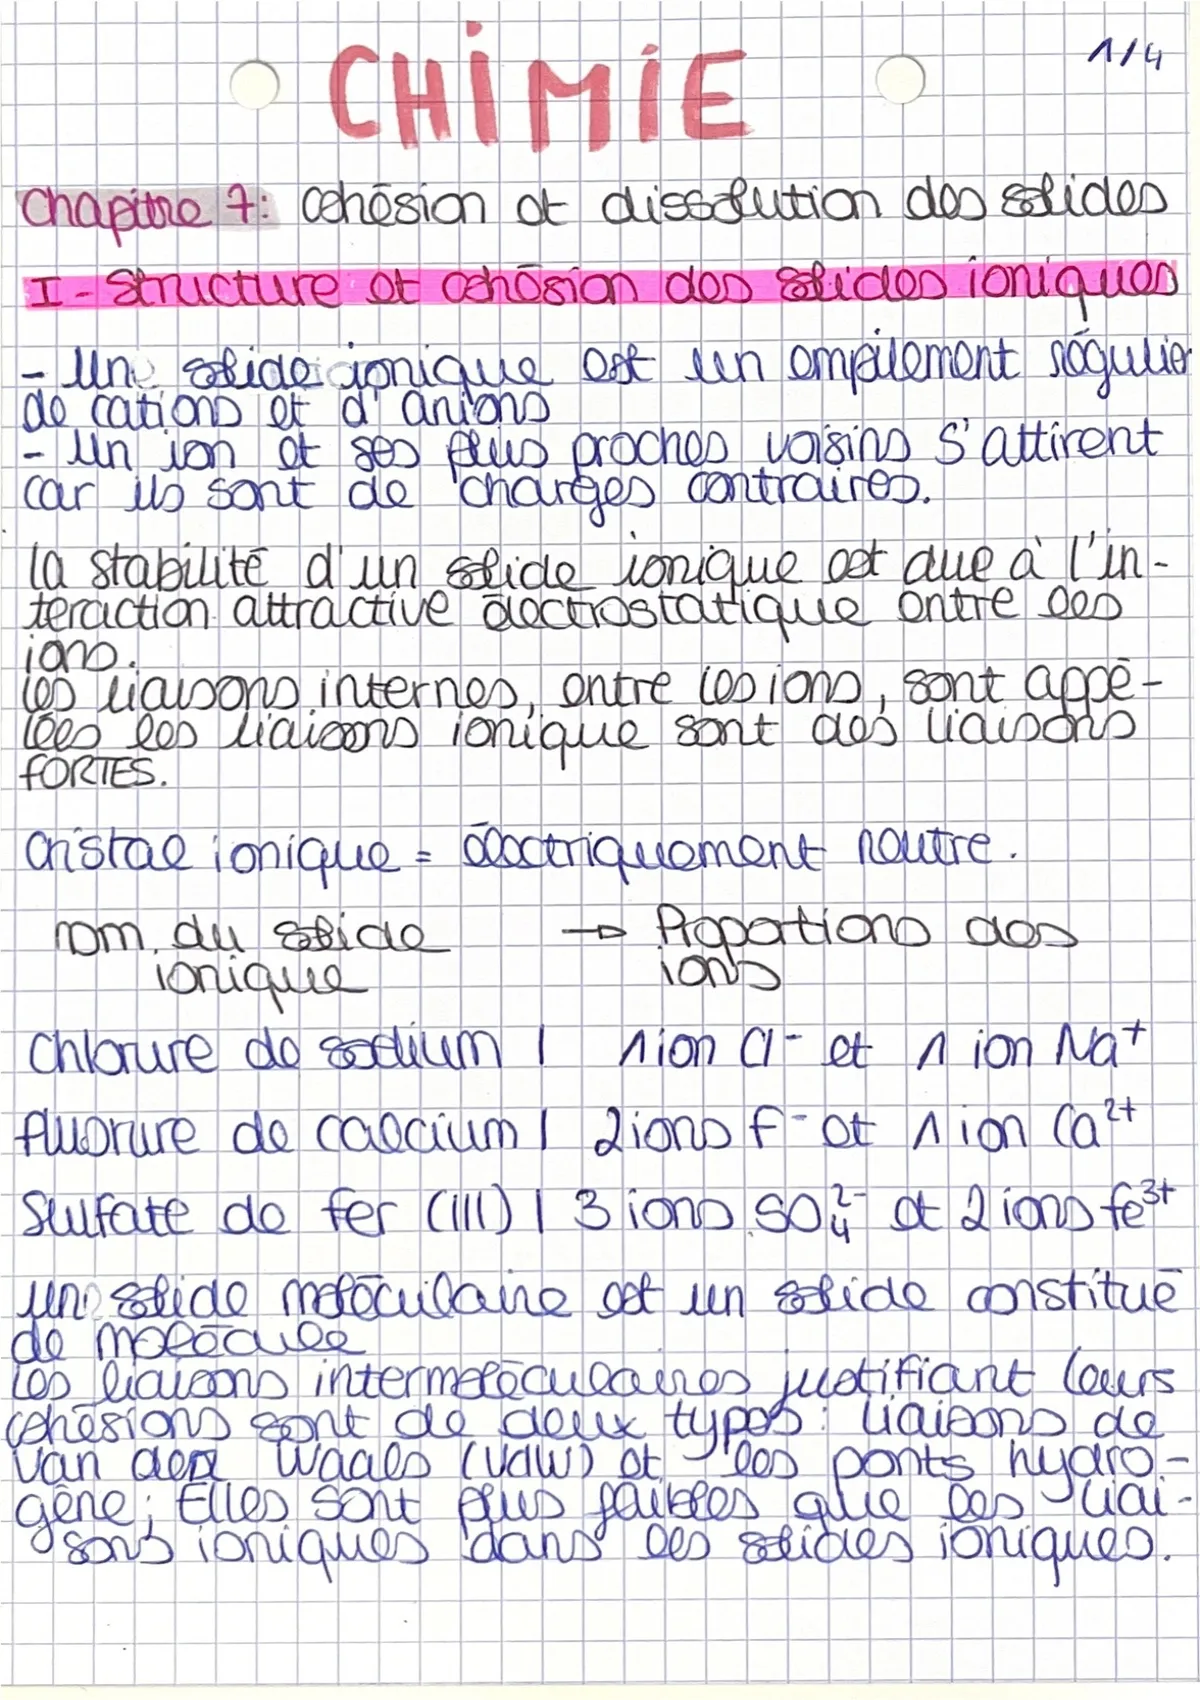 CHIMIE
1/4
Chapitre 7: cohésion et dissolution des solides
I - Structure et cohésion des solides ioniques
- Un solide ionique est un empilement régulier
de cations et d'anions
- Un ion et ses plus proches voisins s'attirent
car ils sont de charges contraires.
la stabilité d'un solide ionique est due à l'in-
teraction attractive électrostatique entre les
ions.
les liaisons internes, entre les ions, sont appé-
lées les liaisons ionique sont des liaisons
FORTES.
cristal ionique = électriquement neutre.
nom du solide → Proportions des
ionique ions
Chlorure de sodium | 1 ion Cl⁻ et 1 ion Na⁺
fluorure de calcium | 2 ions F⁻ et 1 ion Ca²⁺
Sulfate de fer (III) | 3 ions SO₄²⁻ et 2 ions fe³⁺
un solide moléculaire est un solide constitué
de molécule
Les liaisons intermoléculaires justifiant leurs
cohésions sont de deux types : liaisons de
Van der Waals (VdW) et les ponts hydro-
gène; Elles sont plus faibles que les liai-
sons ioniques dans les solides ioniques.